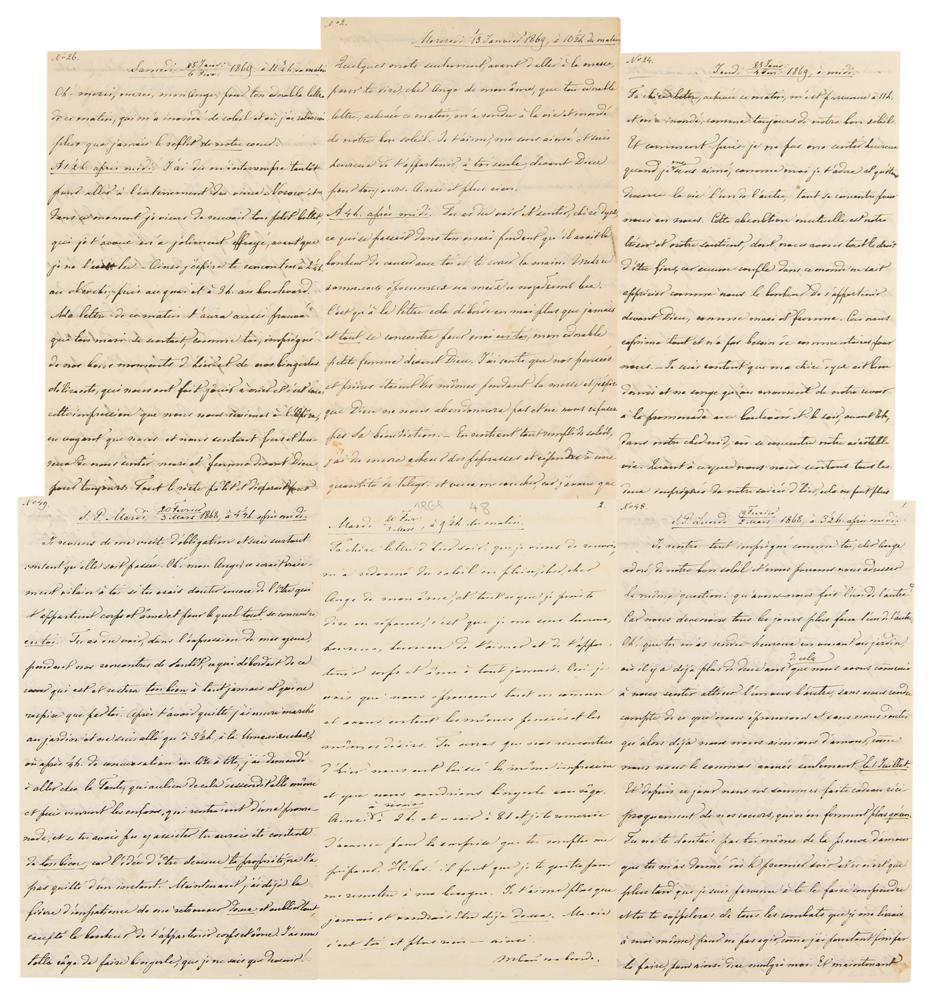 No 26.
Samedi 25 Janv/6 Fév 1869, à 11 ½ h. du matin
Oh merci, merci, mon Ange, pour ton adorable lettre
de ce matin, qui m'a inondé de soleil et où j'ai retrouvé
plus que jamais le reflet de notre coeur.
A 1 ½ h. après midi. J'ai dû m'interrompre tantôt
pour aller à l'enterrement du vieux
dans ce moment je viens de recevoir ton petit billet
qui je t'avoue m'a joliment effrayé, avant que
je ne l'eusse lu. Ainsi j'espère te rencontrer à
puis au quai et à 3 h. au boulevard.
Ma lettre de ce matin t'aura aussi prouvé
que ton mari se sentait, comme toi, imprégné
de nos bons moments d'hier et de nos bingerles
délirantes, qui nous ont fait jouir à
cette impression que nous nous revîmes à l'Opéra,
en voyant que nous et nous sentant fiers et heu
reux de nous sentir mari et femme devant Dieu
pour toujours. Tout le reste pâlit et disparaît pour
No 2.
Mercredi 13 Janvier 1869, à 10 ½ h. du matin
Quelques mots seulement, avant d'aller à la messe,
pour te dire, cher Ange de mon âme, que ton adorable
lettre, achevée ce matin, m'a rendu à la vie et inondé
de notre bon soleil. Je t'aime, me sens aimé et suis
heureux de t'appartenir, à toi seule, devant Dieu
pour toujours. Aimé et plus rien.
A 4 h. après midi. Tu as dû voir et sentir, chère Dyse,
ce qui se passait dans ton mari pendant qu'il avait le
bonheur de causer avec toi et te serrer la main.
C'est qu'à la lettre cela déborde en moi plus que jamais
et tout se concentre pour moi en toi, mon adorable
petite femme devant Dieu. J'ai senti que nos pensées
et prières étaient les mêmes pendant la messe et j'espère
que Dieu ne nous abandonnera pas et ne nous refusera
pas Sa bénédiction. – En rentrant tout rempli de soleil,
j'ai dû encore achever des paperasses et répondre à une
quantité de télégr. et viens me coucher, car j'avoue que
No 24.
Jeudi 23 Janv/4 Fév 1869, à midi.
Ta chère lettre, achevée ce matin, m'est parvenue à 11 h.
et m'a inondé, comme toujours de notre bon soleil.
Et comment puis je ne pas me sentir heureux
quand je me sens aimé, comme moi je t'adore et
devenue la vie l'un de l'autre, tout se concentre pour
nous en nous. Cette absorbtion mutuelle est notre
trésor et notre sentiment, dont nous avons tout le droit
d'être fiers, car aucun couple dans ce monde ne sait
apprécier comme nous le bonheur de s'appartenir
devant Dieu, comme mari et femme. Cela nous
exprime tout et n'a pas besoin de commentaires pour
nous. Je suis content que ma chère Dyse est bien
dormi et ne songe qu'au moment de notre revoir
à la promenade au boulevard et le soir, avant 8 h,
dans notre cher nid, où se concentre notre véritable
vie. Quant à ce que nous nous sentons tous les
deux imprégnés de notre soirée d'hier, cela ne peut plus
No 49.
S.P. Mardi 20 Février/3 Mars 1868, à 4 ½ h. après midi.
Je reviens de ma visite d'obligation et suis surtout
content qu'elle soit passée. Oh mon Ange, ce serait vrai
ment vilain à toi si tu osais douter encore de l'être qui
t'appartient corps et âme et pour lequel tout se concentre
en toi. Tu as dû voir, dans l'expression de mes yeux,
pendant nos rencontres de tantôt, ce qui déborde de ce
coeur qui est et restera ton bien à tout jamais et qui ne
respire que par toi. Après t'avoir quitté, j'ai encore marché
au jardin et ne suis allé qu'à 2 ½ h. à la
où après ½ h. de conversation en tête à tête, j'ai demandé
à aller chez la Tante, qui au lieu de cela descendit elle même
et puis vinrent les enfans, qui rentraient d'une prome
nade, et si tu avais pu y assister tu aurais été contente
de ton bien, car l'idée d'être devenu ta propriété, ne l'a
pas quitté d'un instant. Maintenant j'ai déjà la
fièvre d'impatience de me retrouver Doma et oublier tout
excepté le bonheur de t'appartenir corps et âme. J'ai une
telle rage de faire bingerle, que je ne sais que devenir.
1868 48 2.
Mardi 20 Fév./3 Mars, à 9 ½ h. du matin.
Ta chère lettre d'hier soir, que je viens de recevoir,
m'a redonné du soleil en plein, cher, cher
Ange de mon âme, et tout ce que je puis te
dire en réponse, c'est que je me sens heureux,
heureux, heureux de t'aimer et de t'appar
tenir corps et âme à tout jamais. Oui je
vois que nous éprouvons tout en commun
et avons surtout les mêmes pensées et les
mêmes désirs. Tu verras que nos rencontres
d'hier nous ont laissé la même impression
et que nous voudrions bingerle avec rage.
Ainsi à revoir à 2 h. et ce soir à 8 ½ et je te remercie
d'avance pour la surprise que tu comptes me
préparer. Hélas! il faut que je te quitte pour
me remettre à ma besogne. Je t'aime plus que
jamais et voudrais être déjà Doma. Ma vie
c'est toi et plus rien – ainsi.
No 48. 1.
S.P. Lundi 19 Février/2 Mars 1868, à 3 ½ h. après midi.
Je rentre tout imprégné comme toi, cher Ange
adoré, de notre bon soleil et nous pouvons nous adresser
la même question: qu'avons nous fait l'un de l'autre?
Car nous devenons tous les jours plus fous l'un de l'autre.
Oh! que tu m'as rendu heureux en venant au jardin,
où il y a déjà plus de deux ans de cela que nous avons commencé
à nous sentir attirés l'un vers l'autre, sans nous rendre
compte de ce que nous éprouvions et sans nous douter
qu'alors déjà nous nous aimions d'amour, comme
nous nous le sommes avoués seulement le 1 Juillet.
Et depuis ce jour nous nous sommes faits cadeau réci
proquement de nos coeurs, qui n'en forment plus qu'un.
Tu ne te doutais pas toi même de la preuve d'amour
que tu m'as donné dès le premier soir et ce n'est que
plus tard que je suis parvenu à te le faire comprendre
et tu te rappelleras de tous les combats que je me livrais
à moi même, pour ne pas agir, comme j'ai pourtant fini par
le faire, pour ainsi dire malgré moi. Et maintenant